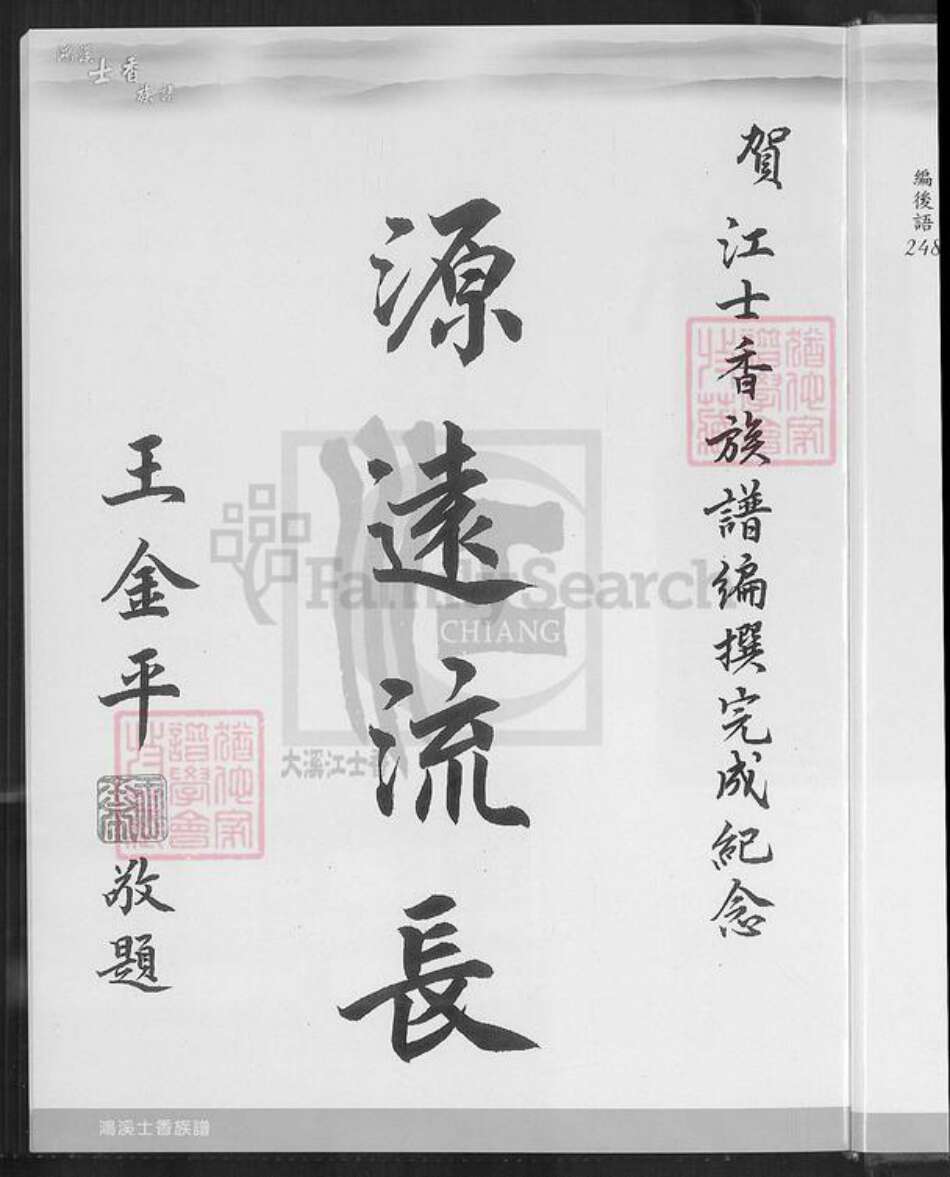 編後語
248
賀
江士香族譜編撰完成紀念
源遠流長
王金平
敬題
鴻溪
士香
族譜
FamilySearch
CHIANG
大溪江士香
鴻溪士香族譜